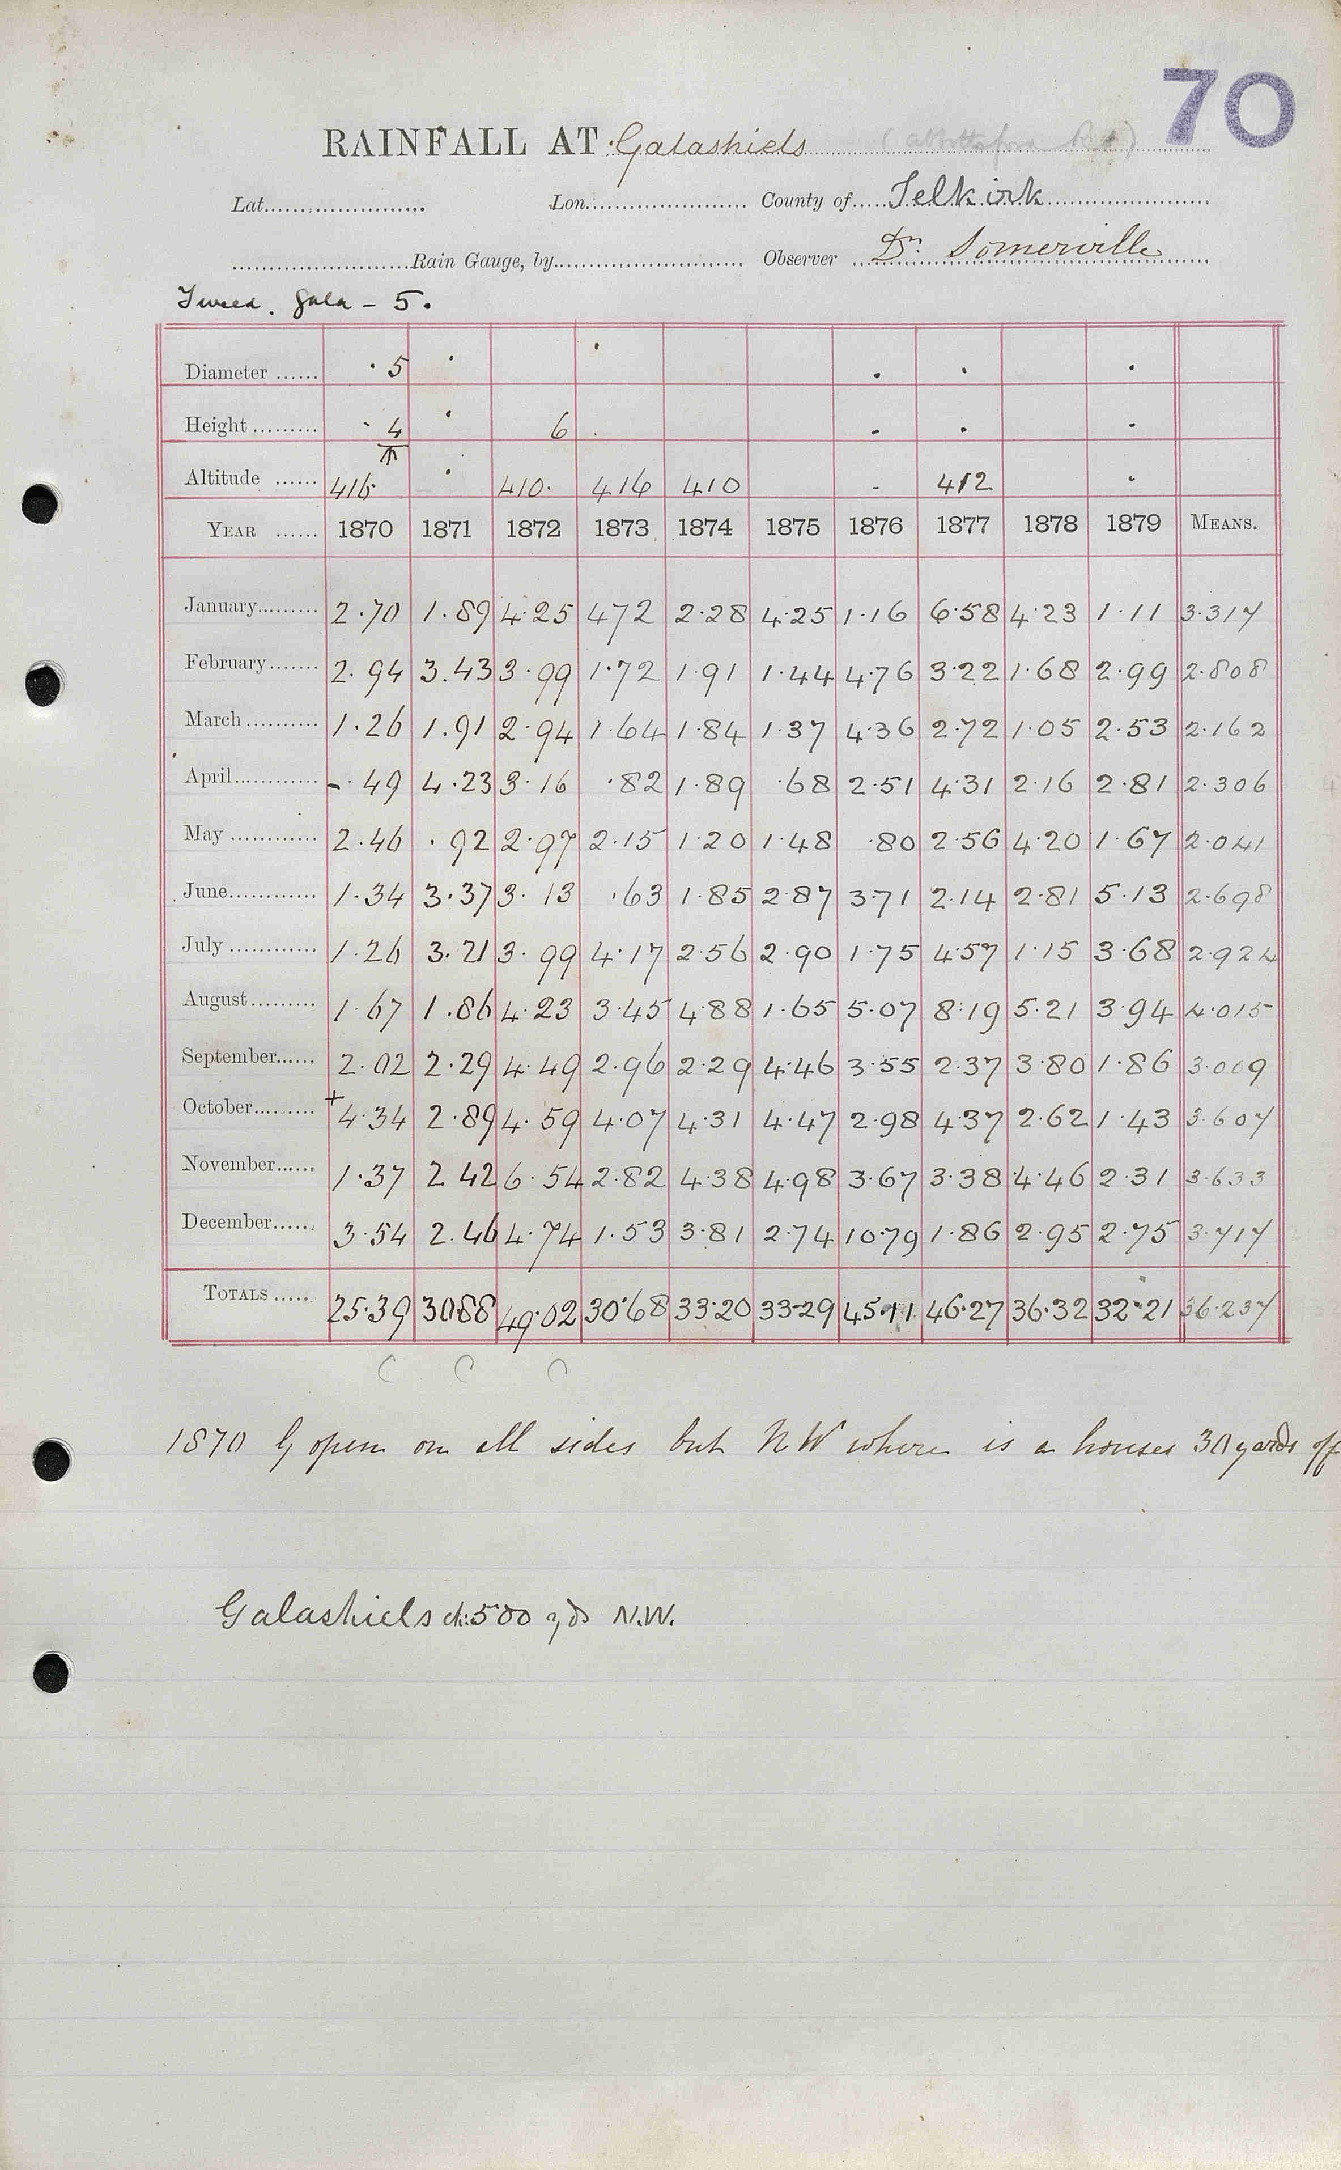 70
RAINFALL AT Galashiels (Abbotsford Rd)
Lat. Lon. County of Selkirk
Rain Gauge, by Observer Dr. Somerville
Tweed. Gala - 5.
Diameter 5
Height 4 6
Altitude 416 410 416 410 412
YEAR 1870 1871 1872 1873 1874 1875 1876 1877 1878 1879 MEANS.
January 2.70 1.89 4.25 4.72 2.28 4.25 1.16 6.58 4.23 1.11 3.317
February 2.94 3.43 3.99 1.72 1.91 1.44 4.76 3.22 1.68 2.99 2.808
March 1.26 1.91 2.94 1.64 1.84 1.37 4.36 2.72 1.05 2.53 2.162
April - .49 4.23 3.16 .82 1.89 .68 2.51 4.31 2.16 2.81 2.306
May 2.46 .92 2.97 2.15 1.20 1.48 .80 2.56 4.20 1.67 2.041
June 1.34 3.37 3.13 .63 1.85 2.87 3.71 2.14 2.81 5.13 2.698
July 1.26 3.21 3.99 4.17 2.56 2.90 1.75 4.57 1.15 3.68 2.924
August 1.67 1.86 4.23 3.45 4.88 1.65 5.07 8.19 5.21 3.94 4.015
September 2.02 2.29 4.49 2.96 2.29 4.46 3.55 2.37 3.80 1.86 3.009
October + 4.34 2.89 4.59 4.07 4.31 4.47 2.98 4.37 2.62 1.43 3.607
November 1.37 2.42 6.54 2.82 4.38 4.98 3.67 3.38 4.46 2.31 3.633
December 3.54 2.46 4.74 1.53 3.81 2.74 10.79 1.86 2.95 2.75 3.717
TOTALS 25.39 30.88 49.02 30.68 33.20 33.29 45.11 46.27 36.32 32.21 36.237
C C C
1870 G open on all sides but NW where is a houses 30 yards off
Galashiels ch. 500 yds N.W.